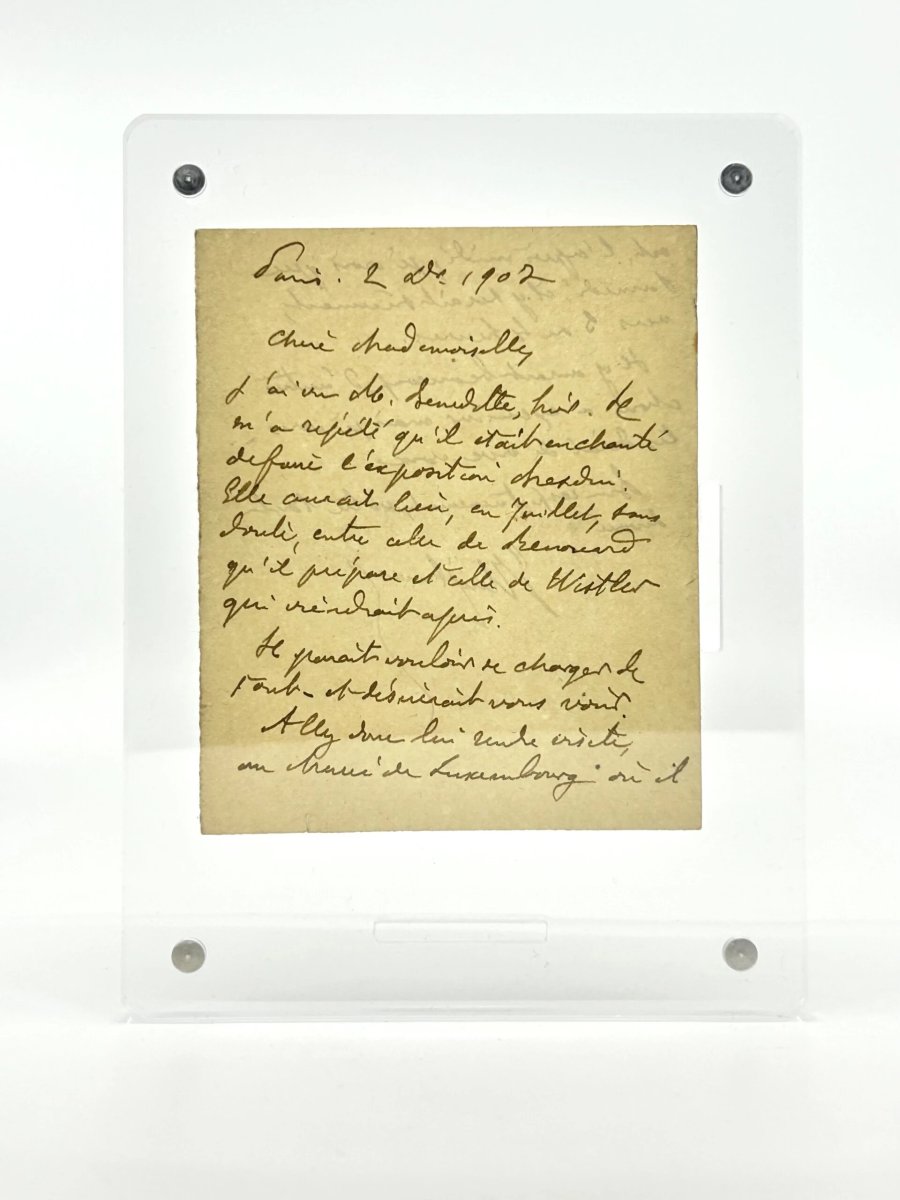 Paris. 2 Dbr 1902
Chère Mademoiselle,
J'ai vu M. Benedite, hier. Il
m'a répété qu'il était enchanté
de faire l'exposition
Elle aurait lieu, en Juillet, sans
doute, entre celle de Renouard
qu'il prépare et celle de Wistler
qui viendrait après.
Il parait vouloir se charger de
tout - et désirerait vous voir.
Allez donc lui rendre visite,
au Musée de Luxembourg où il